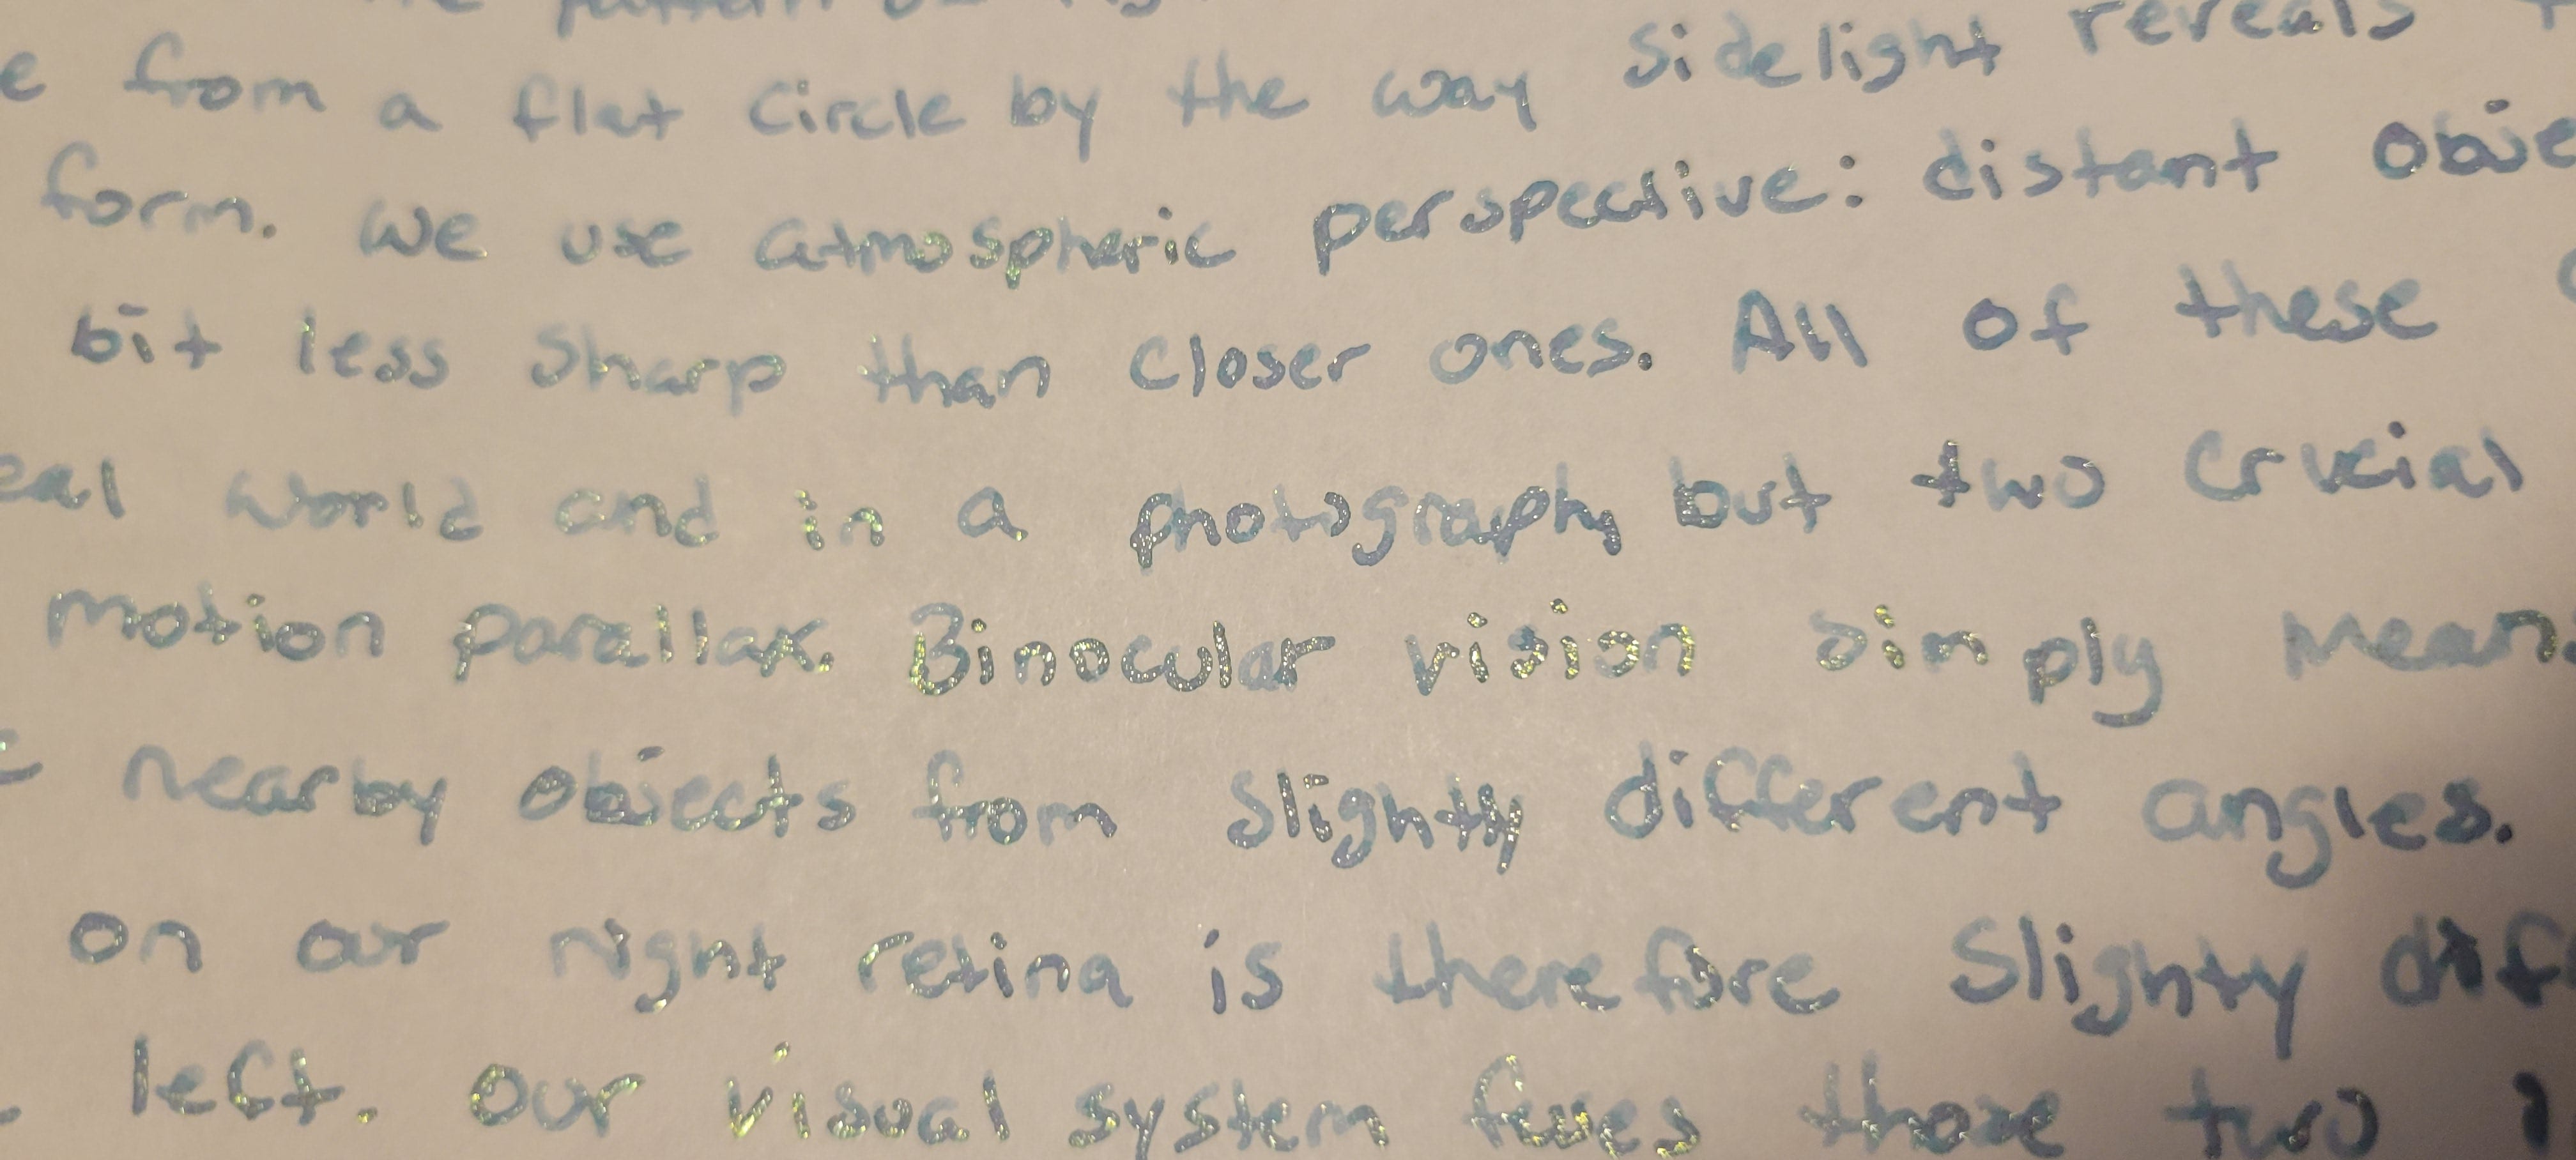 from a flat circle by the way Sidelight reveals
form. We use atmospheric perspective: distant
bit less sharp than closer ones. All of these
world and in a photograph, but two crucial
motion parallax. Binocular vision simply mean
nearby objects from slightly different angles.
on our right retina is therefore slighty
left. Our visual system fuses those two